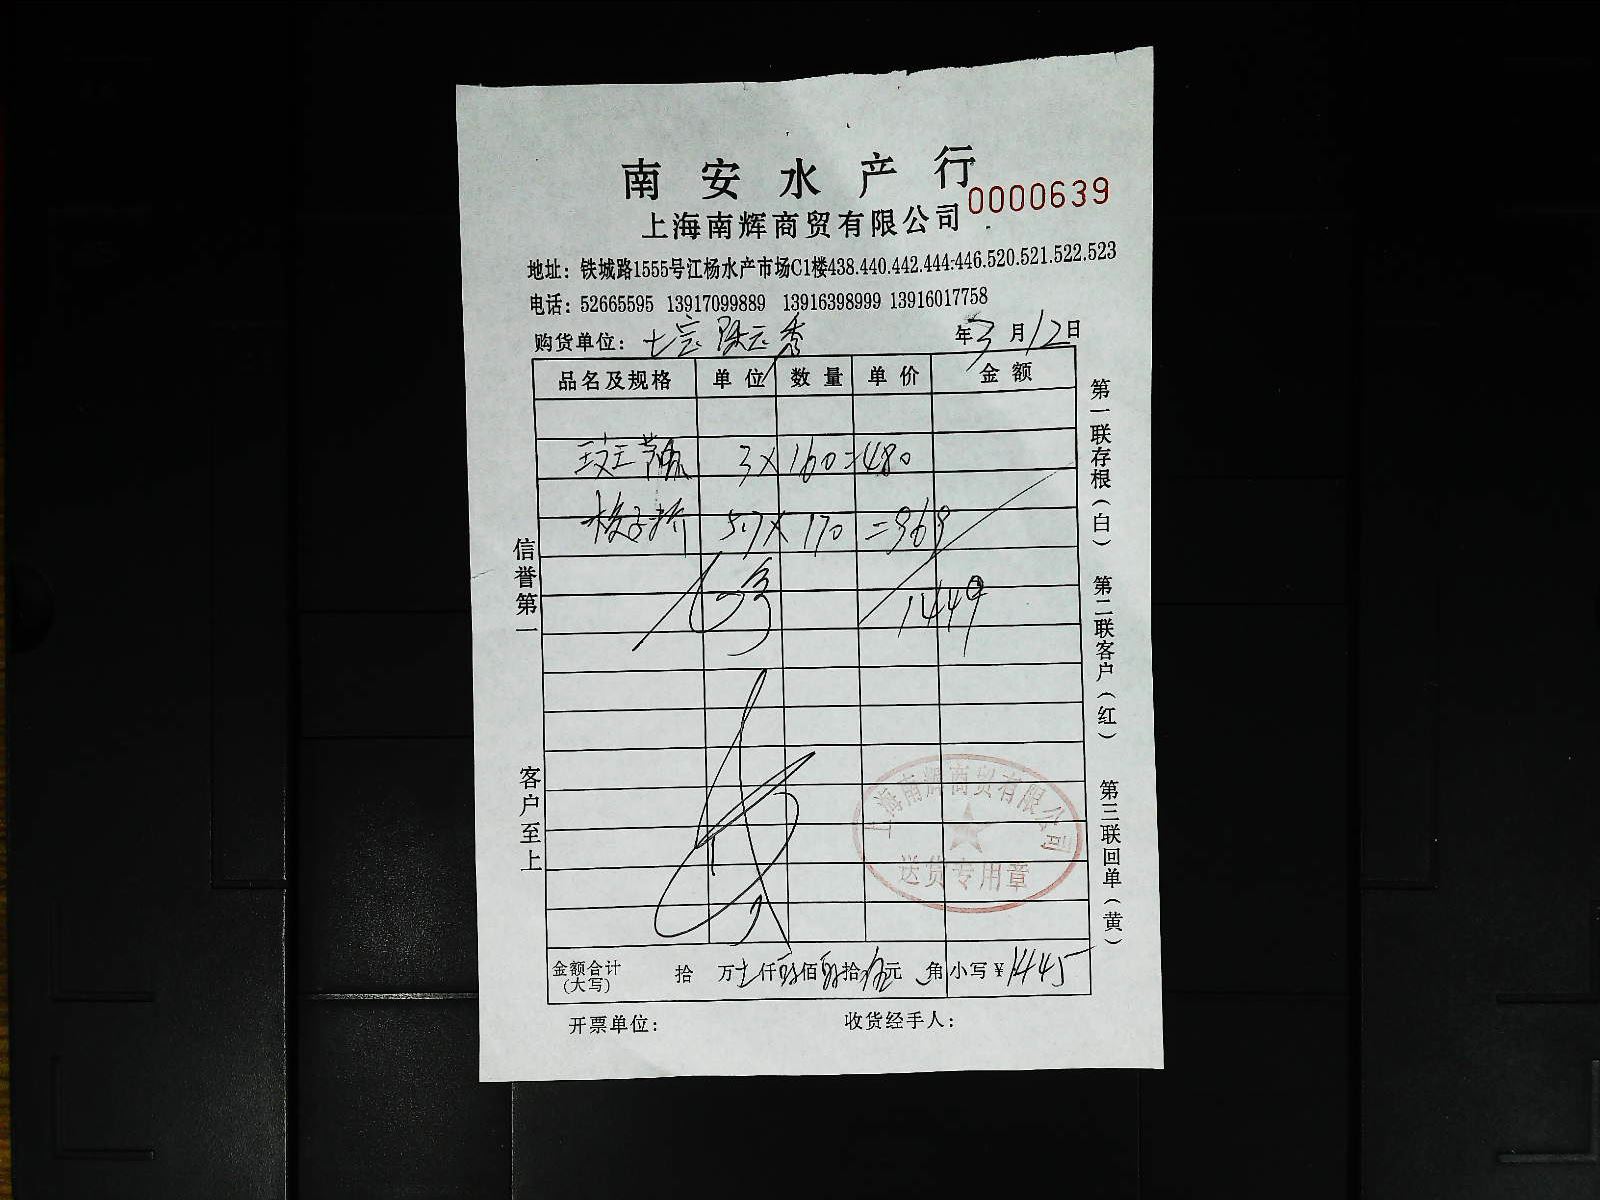 南安水产行
0000639
上海南辉商贸有限公司
地址：铁城路1555号江杨水产市场C1楼438.440.442.444.446.520.521.522.523
电话：52665595 13917099889 13916398999 13916017758
购货单位： 年3月12日
品名及规格 单位 数量 单价 金额
3×160=480
5.7×170=969
1449
信誉第一
客户至上
第一联存根（白） 第二联客户（红） 第三联回单（黄）
上海南辉商贸有限公司
送货专用章
金额合计（大写） 拾 万 仟 佰 拾 元 角 小写￥1445
开票单位： 收货经手人：